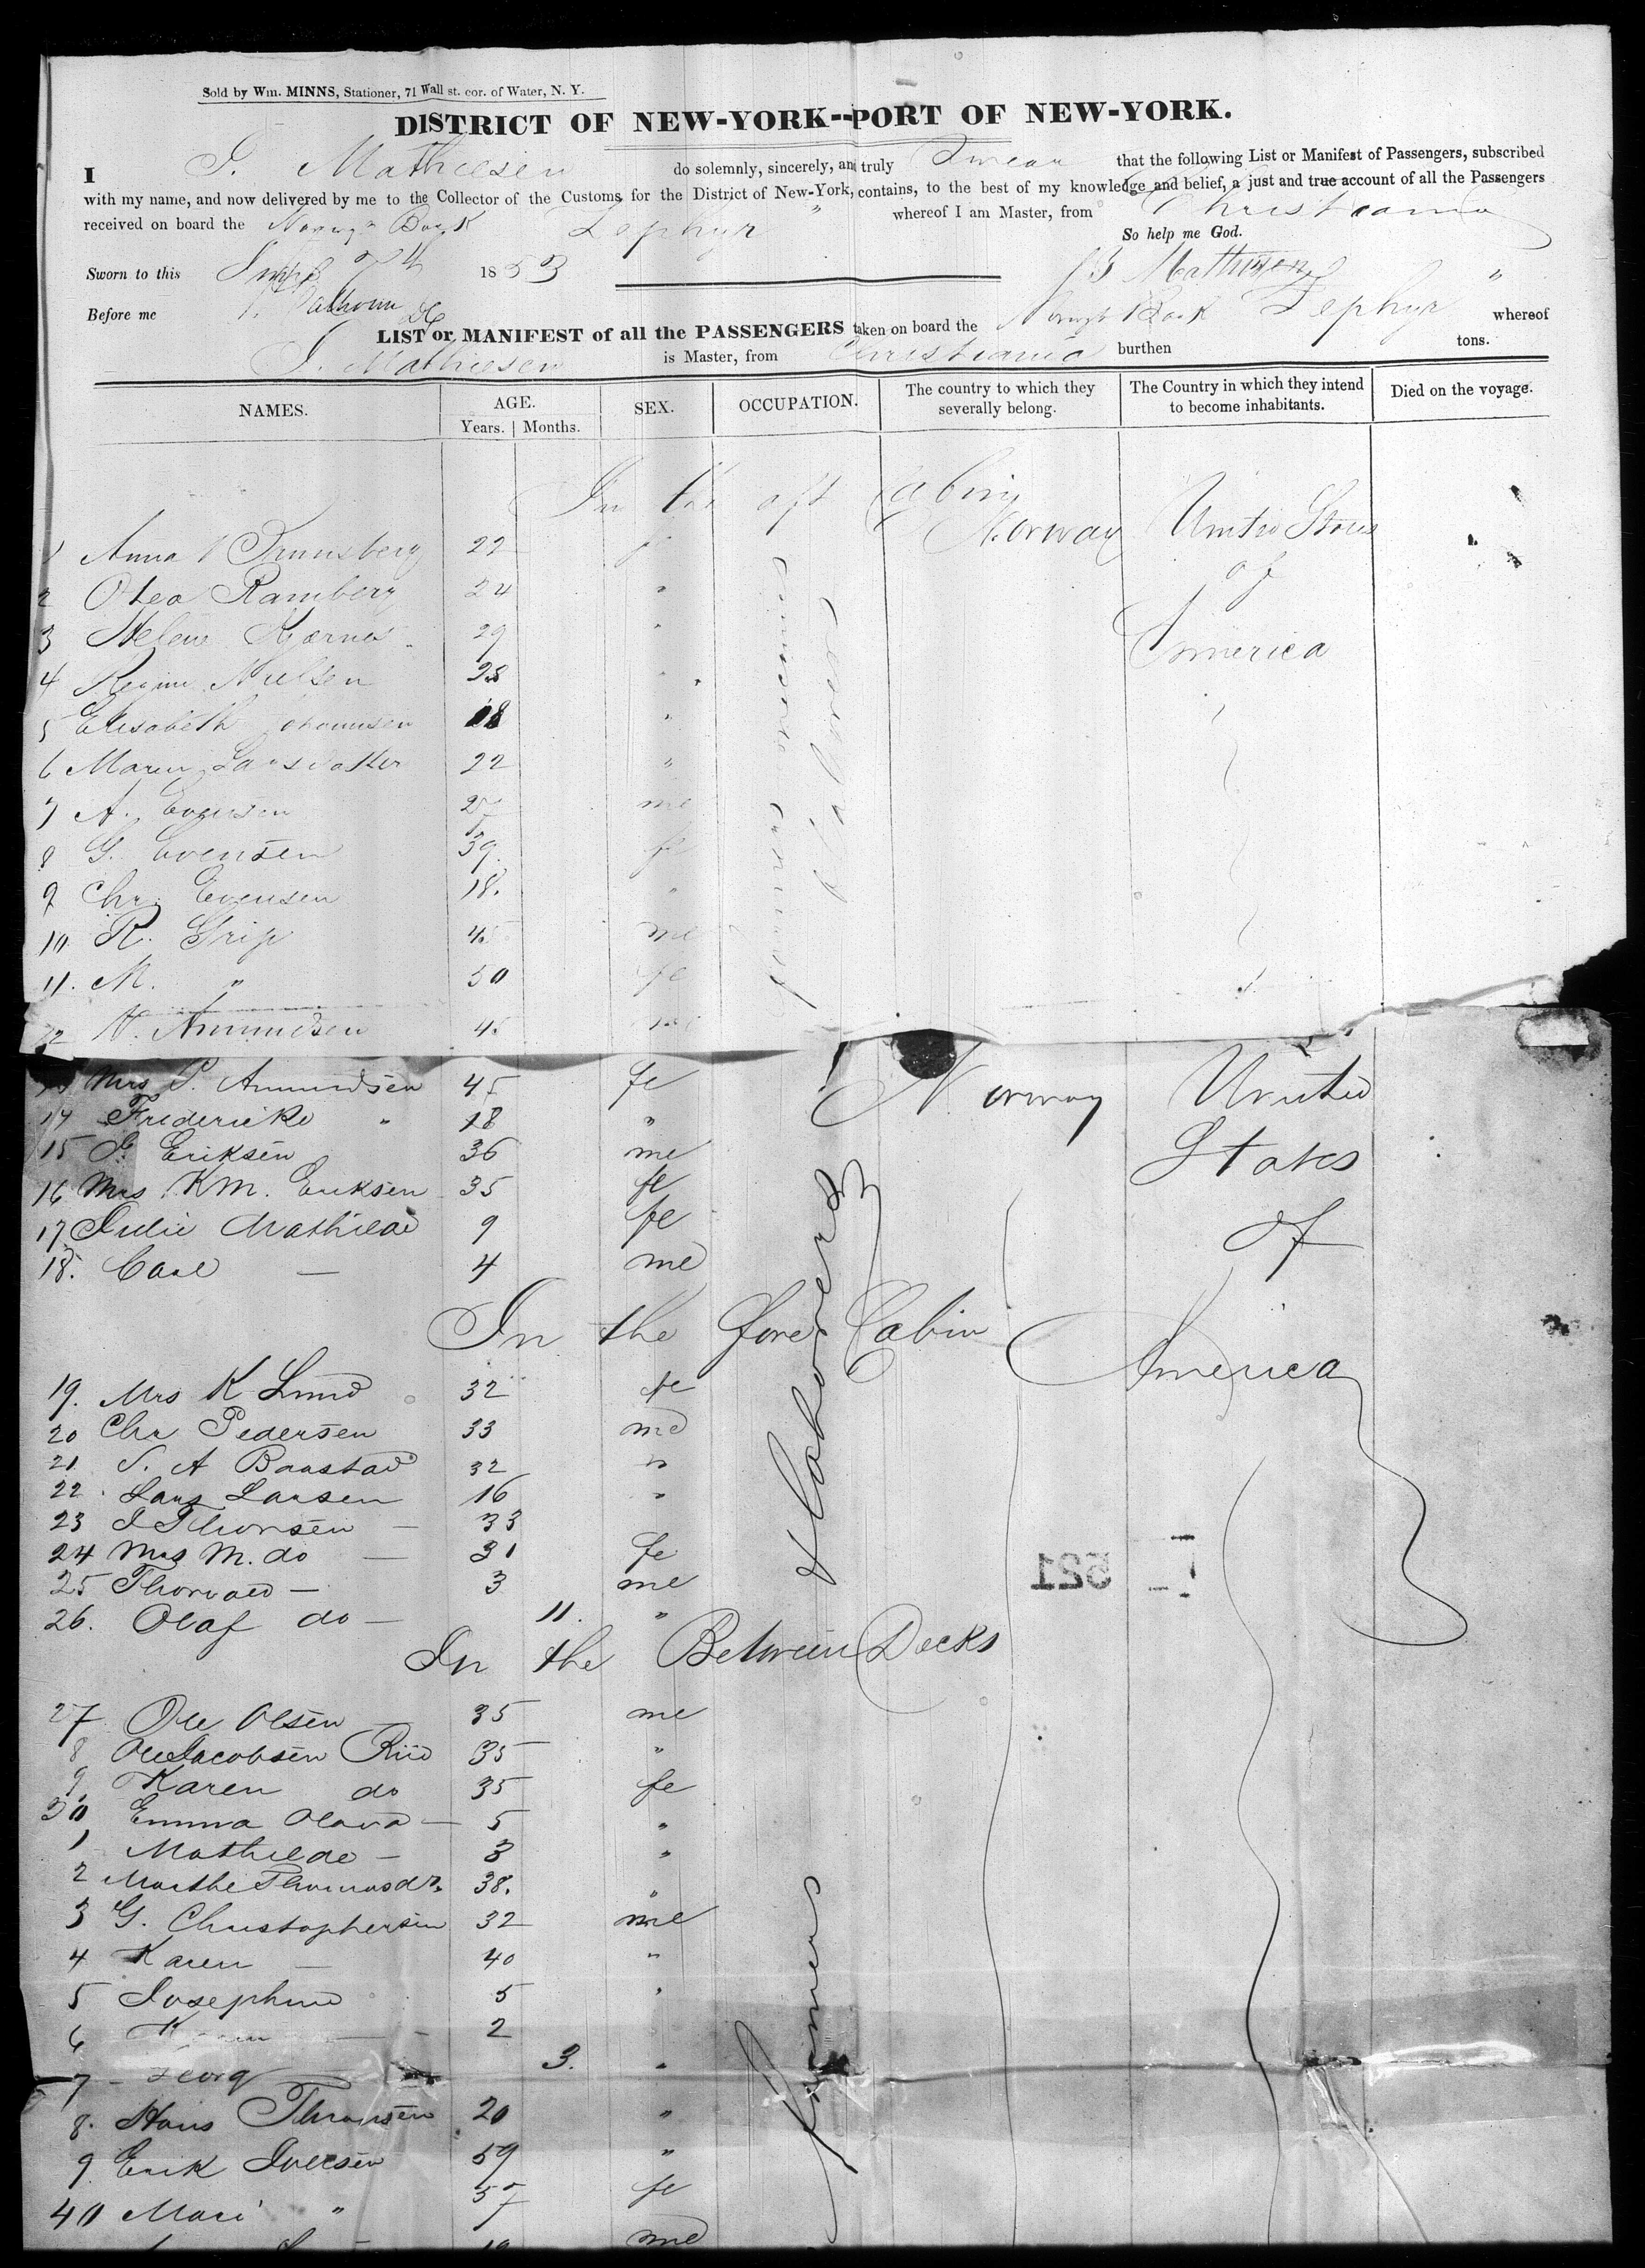 Sold by Wm. MINNS, Stationer, 71 Wall st. cor. of Water, N. Y.
DISTRICT OF NEW-YORK--PORT OF NEW-YORK.
I J. Mathiesen do solemnly, sincerely, and truly Swear that the following List or Manifest of Passengers, subscribed
with my name, and now delivered by me to the Collector of the Customs for the District of New-York, contains, to the best of my knowledge and belief, a just and true account of all the Passengers
received on board the Bark Zephyr whereof I am Master, from Christiania
So help me God.
Sworn to this 7th 1853 Mathiesen
Before me Calhoun
LIST or MANIFEST of all the PASSENGERS taken on board the Bark Zephyr whereof
J. Mathiesen is Master, from Christiania burthen tons.
NAMES. AGE. SEX. OCCUPATION. The country to which they severally belong. The Country in which they intend to become inhabitants. Died on the voyage.
Years. Months.
In the aft Cabin
1 Anna 22 Norway United States
2 Olea Ramberg 24 " of
3 Helene 29 " America
4 Nielsen 28 "
5 Elisabeth 18 "
6 Maren 22 "
7 A. Evensen me
8 G. Evensen 39. fe
9 Chr. Evensen 18. "
10 R. Grip 45 me
11. M. " 50 fe
12 Amundsen
Mrs P. Amundsen 45 fe Norway United
14 Frederikke " 18 "
15 Eriksen 36 me States
16 Mrs. K M. Eriksen 35 fe
17 Julie Mathilde 9 fe of
18. Carl — 4 me
In the fore Cabin
America
19. Mrs K Lund 32 fe
20 Chr Pedersen 33 me
21. A Baastad 32 "
22. Lars Larsen 16 "
23 Thorsen — 33
24 Mrs M. do — 31 fe
25 Thorvald — 3 me
26. Olaf do — 11. "
& Labourers
521
In the Between Decks
27 Ole Olsen 35 me
8 Ole Jacobsen 35 "
9 Karen do 35 fe
30 Emma — 5 "
1 Mathilde — 3 "
2 Marthe Thomasdr. 38. "
3 G. Christophersen 32 me
4 Karen — 40 "
5 Josephine 5 "
6 2
7 Georg 3. "
8. Hans 20 "
9 Erik Iversen 59 "
40 Mari " 57 fe
me
farmers